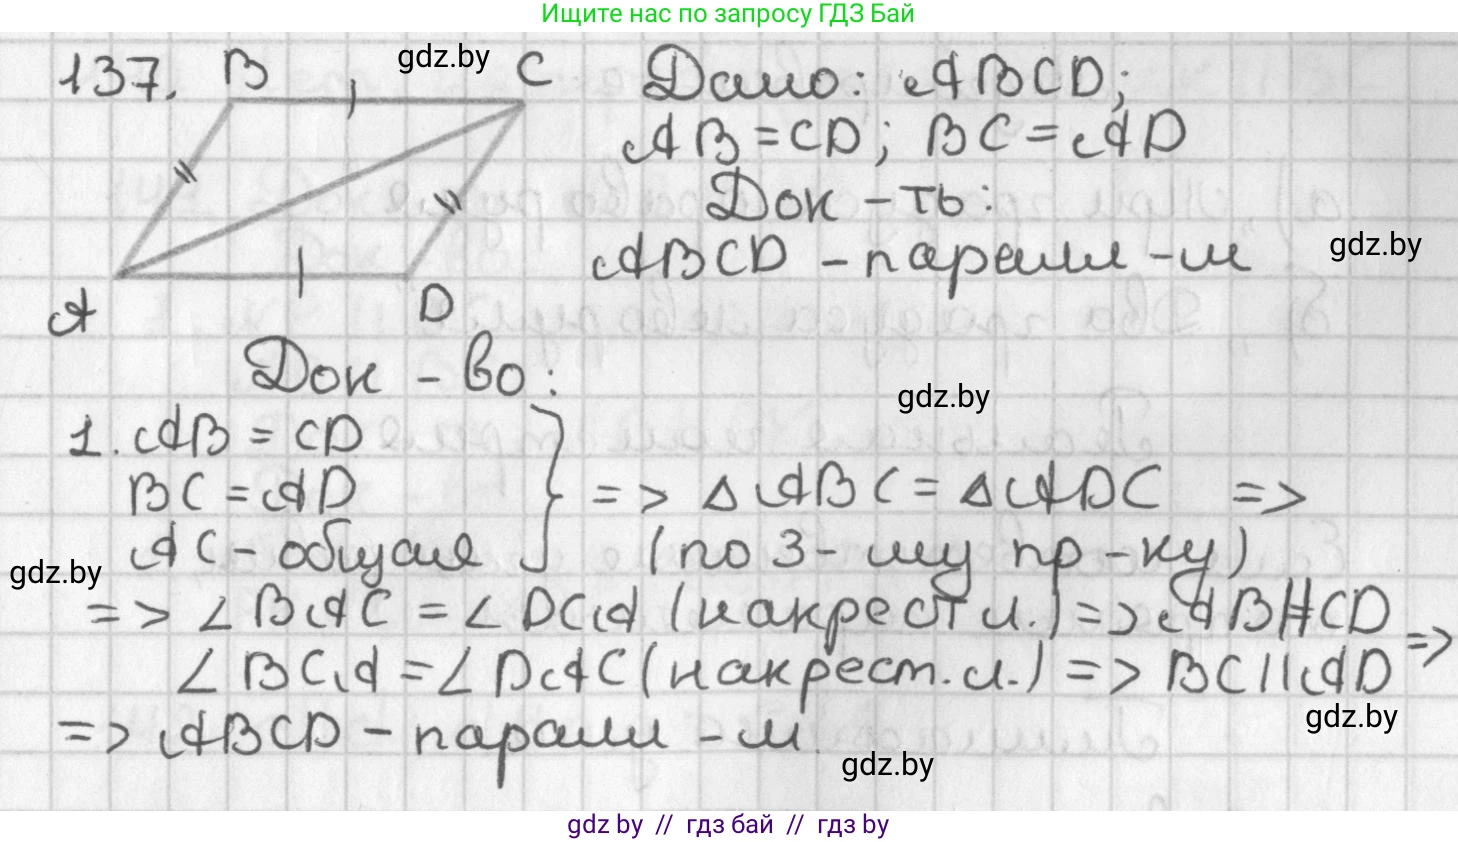 Ищите нас по запросу ГДЗ Бай
137. B C
gdz.by
Дано: ABCD;
AB = CD; BC = AD
Док - ть:
ABCD - паралл - м
gdz.by
A D
Док - во:
gdz.by
1. AB = CD
BC = AD } => △ABC = △ADC =>
AC - общая (по 3 - му пр - ку)
gdz.by
=> ∠BAC = ∠DCA (накрест л.) => AB || CD
∠BCA = ∠DAC (накрест. л.) => BC || AD =>
gdz.by
=> ABCD - паралл - м.
gdz.by
gdz by // гдз бай // гдз by